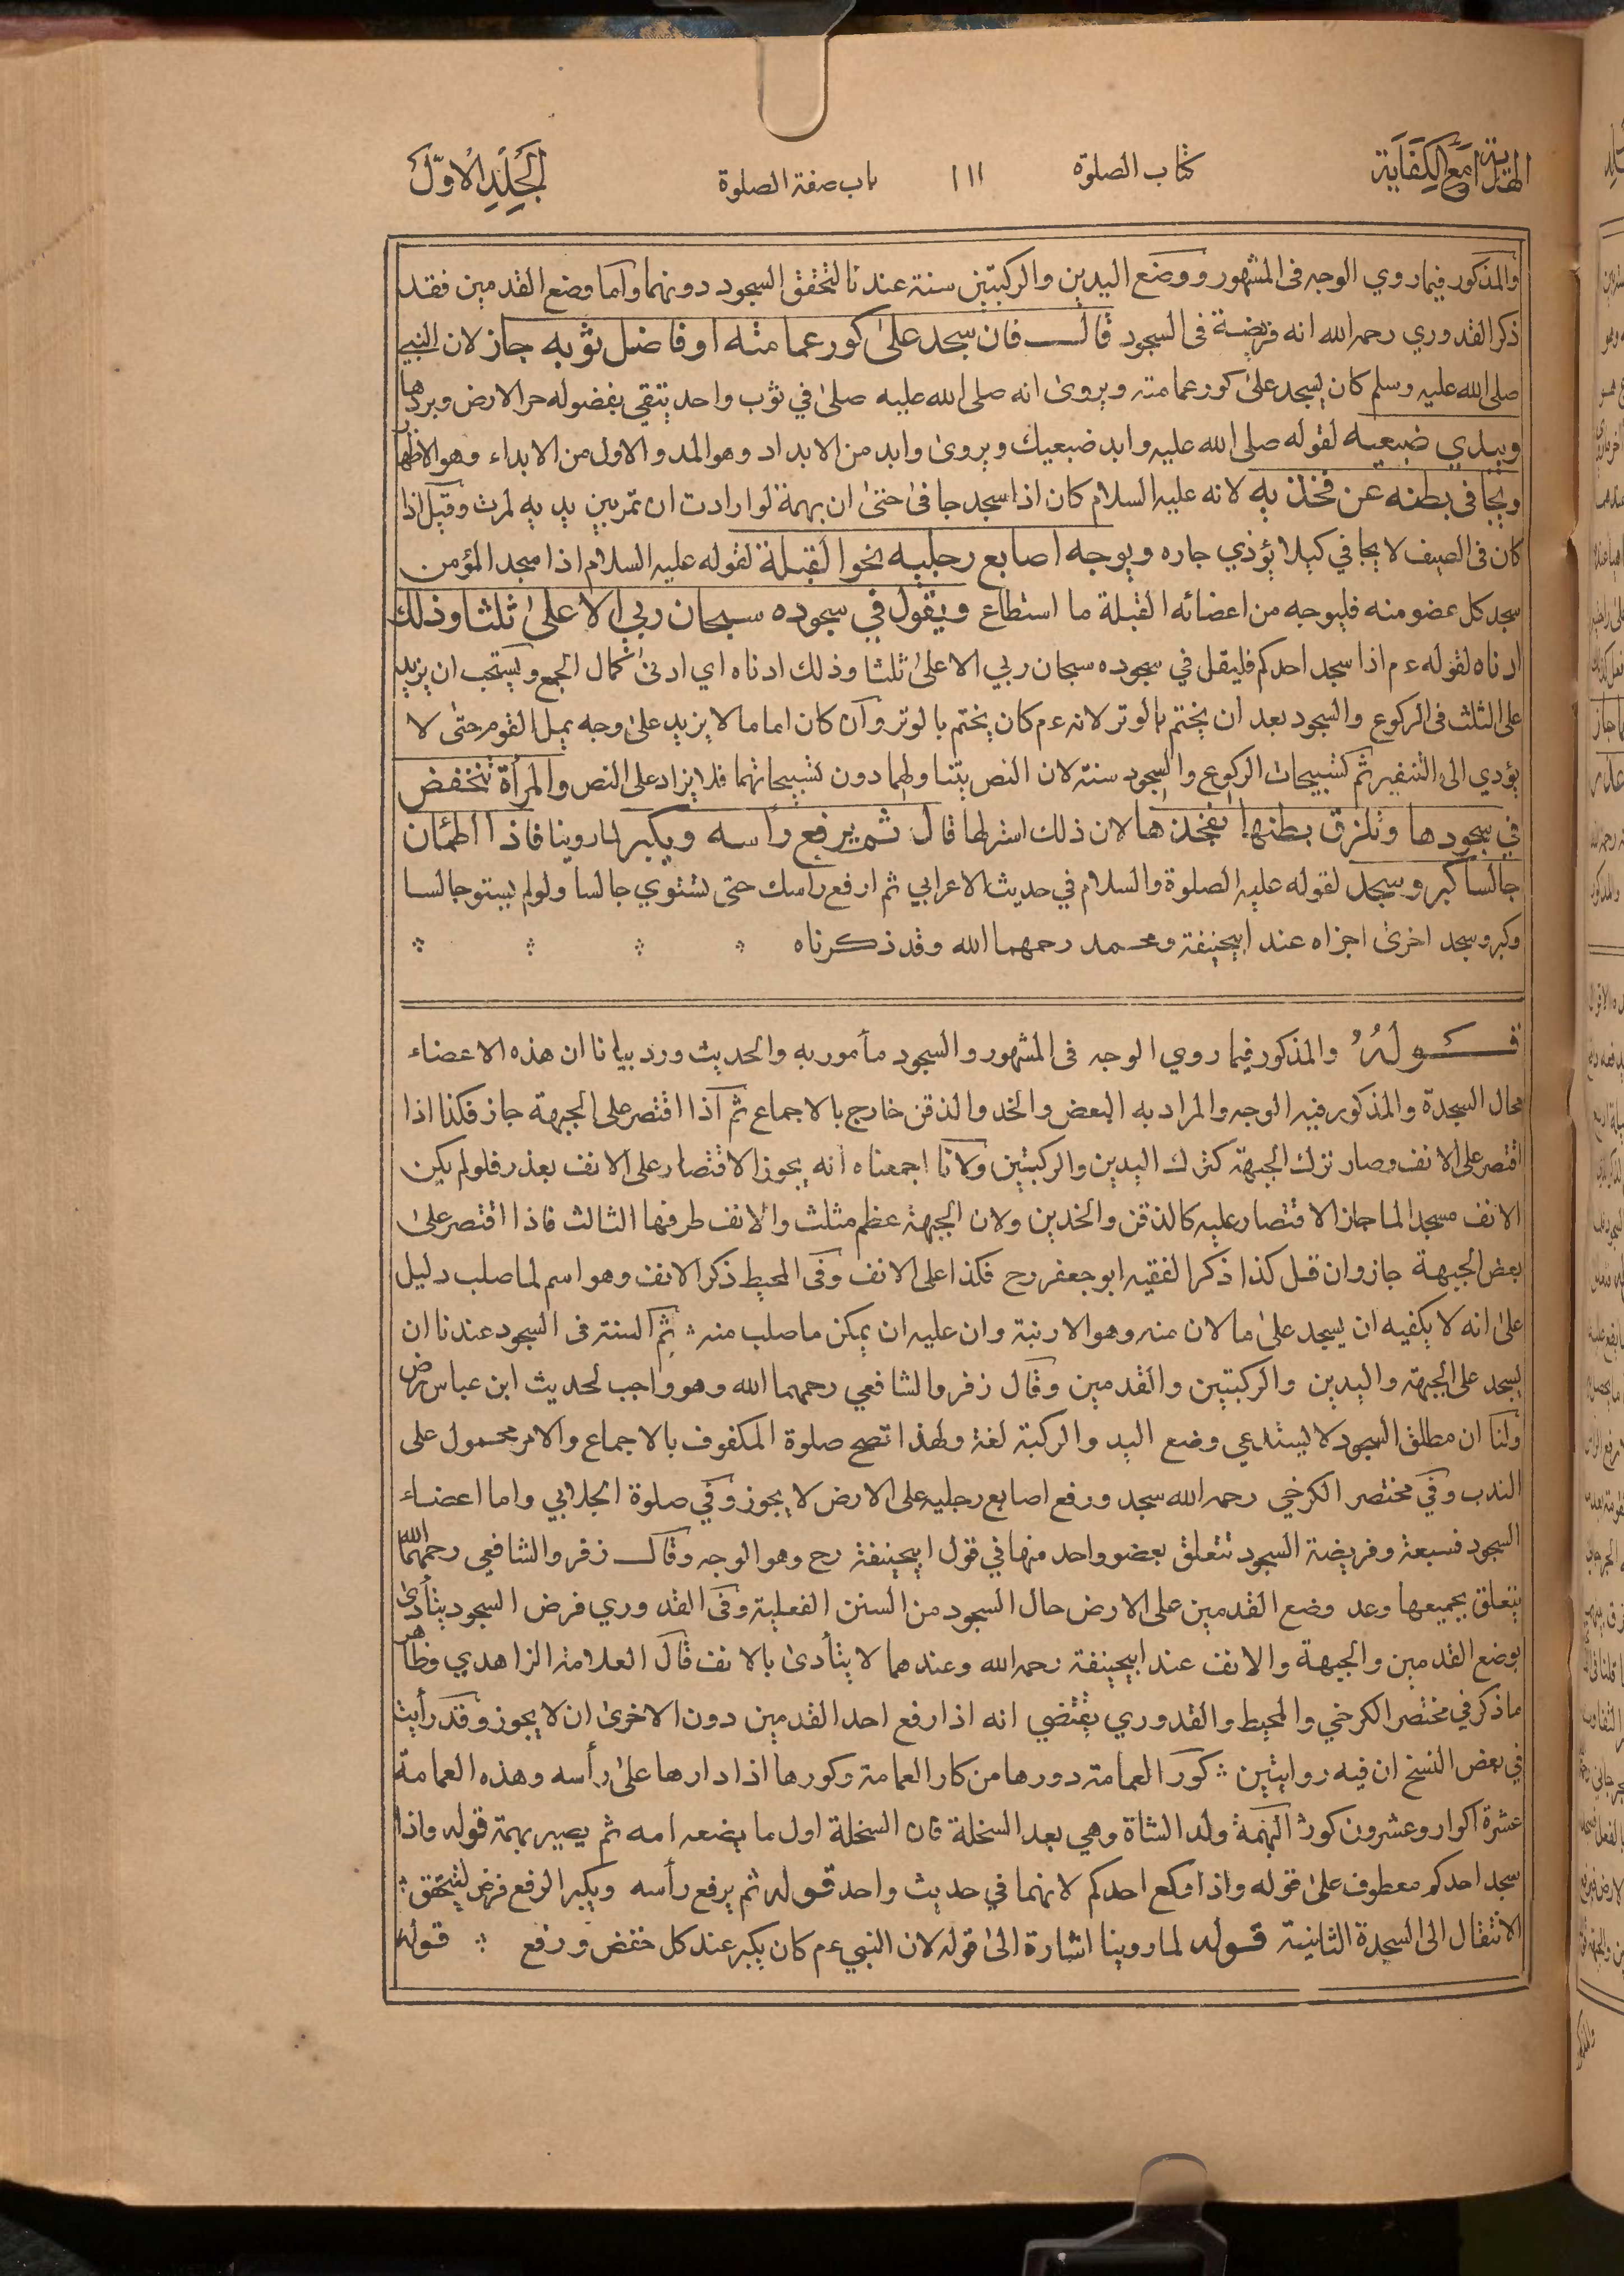 الهداية مع الكفاية كتاب الصلوة ١١١ باب صفة الصلوة الجلد الاول
والمذكور فيما روي الوجه فى المشهور ووضع اليدين والركبتين سنة عندنا لتحقق السجود دونهما واما وضع القدمين فقد
ذكر القدوري رحمه الله انه فريضة فى السجود قال فان سجد على كور عمامته او فاضل ثوبه جاز لان النبي
صلى الله عليه وسلم كان يسجد على كور عمامته ويروى انه صلى الله عليه صلى في ثوب واحد يتقي بفضوله حر الارض وبردها
ويبدي ضبعيه لقوله صلى الله عليه وابد ضبعيك ويروى وابد من الابداد وهو المد والاول من الابداء وهو الاظهار
ويجافى بطنه عن فخذيه لانه عليه السلام كان اذا سجد جافى حتى ان بهمة لو ارادت ان تمر بين يديه لمرت وقيل اذا
كان فى الصيف لا يجافي كيلا يؤذي جاره ويوجه اصابع رجليه نحو القبلة لقوله عليه السلام اذا سجد المؤمن
سجد كل عضو منه فليوجه من اعضائه القبلة ما استطاع ويقول في سجوده سبحان ربي الاعلى ثلثا وذلك
ادناه لقوله ءم اذا سجد احدكم فليقل في سجوده سبحان ربي الاعلى ثلثا وذلك ادناه اي ادنى كمال الجمع ويستحب ان يزيد
على الثلث فى الركوع والسجود بعد ان يختم بالوتر لانه ءم كان يختم بالوتر وان كان اماما لا يزيد على وجه يمل القوم حتى لا
يؤدي الى التنفير ثم تسبيحات الركوع والسجود سنة لان النص يتناولهما دون تسبيحاتهما فلا يزاد على النص والمرأة تنخفض
في سجودها وتلزق بطنها بفخذها لان ذلك استرلها قال ثم يرفع رأسه ويكبر لما روينا فاذا اطمئان
جالسا كبر وسجد لقوله عليه الصلوة والسلام في حديث الاعرابي ثم ارفع رأسك حتى تستوي جالسا ولو لم يستو جالسا
وكبر وسجد اخرى اجزاه عند ابيحنيفة ومحمد رحمهما الله وقد ذكرناه
قوله والمذكور فيما روي الوجه فى المشهور والسجود مأمور به والحديث ورد بيانا ان هذه الاعضاء
محال السجدة والمذكور فيه الوجه والمراد به البعض والخد والذقن خارج بالاجماع ثم اذا اقتصر على الجبهة جاز فكذا اذا
اقتصر على الانف وصار ترك الجبهة كترك اليدين والركبتين ولانا اجمعنا انه يجوز الاقتصار على الانف بعذر فلو لم يكن
الانف مسجدا لما جاز الاقتصار عليه كالذقن والخدين ولان الجبهة عظم مثلث والانف طرفها الثالث فاذا اقتصر على
بعض الجبهة جاز وان قل كذا ذكر الفقيه ابو جعفر رح فكذا على الانف وفى المحيط ذكر الانف وهو اسم لما صلب دليل
على انه لا يكفيه ان يسجد على ما لان منه وهو الارنبة وان عليه ان يمكن ما صلب منه ثم السنة فى السجود عندنا ان
يسجد على الجبهة واليدين والركبتين والقدمين وقال زفر والشافعي رحمهما الله وهو واجب لحديث ابن عباس رض
ولنا ان مطلق السجود لا يستدعي وضع اليد والركبة لغة ولهذا تصح صلوة المكفوف بالاجماع والامر محمول على
الندب وفي مختصر الكرخي رحمه الله سجد ورفع اصابع رجليه على الارض لا يجوز وفي صلوة الجلابي واما اعضاء
السجود فسبعة وفريضة السجود تتعلق بعضو واحد منها في قول ابيحنيفة رح وهو الوجه وقال زفر والشافعي رحمهما الله
يتعلق بجميعها وعد وضع القدمين على الارض حال السجود من السنن الفعلية وفى القدوري فرض السجود يتأدى
بوضع القدمين والجبهة والانف عند ابيحنيفة رحمه الله وعندهما لا يتأدى بالانف قال العلامة الزاهدي وظاهر
ما ذكر في مختصر الكرخي والمحيط والقدوري يقتضي انه اذا رفع احد القدمين دون الاخرى ان لا يجوز وقد رأيت
في بعض النسخ ان فيه روايتين كور العمامة دورها من كار العمامة وكورها اذا دارها على رأسه وهذه العمامة
عشرة اكوار وعشرون كورا البهمة ولد الشاة وهي بعد السخلة فان السخلة اول ما يضعه امه ثم يصير بهمة قوله واذا
سجد احدكم معطوف على قوله واذا ركع احدكم لانهما في حديث واحد قوله ثم يرفع رأسه ويكبر الرفع فرض ليتحقق
الانتقال الى السجدة الثانية قوله لما روينا اشارة الى قوله لان النبي ءم كان يكبر عند كل خفض ورفع قوله